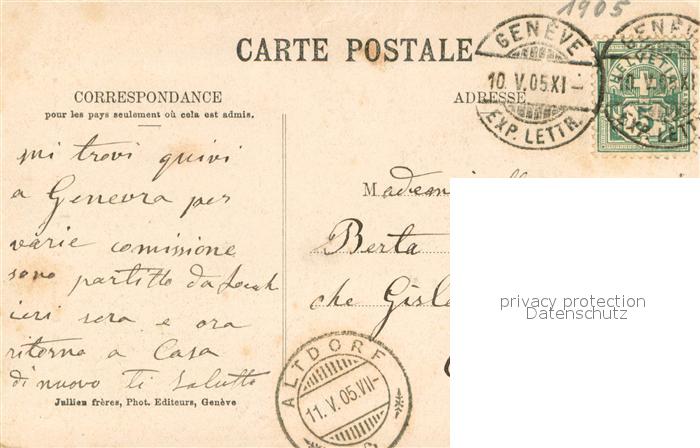 1905
CARTE POSTALE
GENÈVE
10. V. 05 XI –
EXP. LETTR.
GENÈVE
10. V. 05 XI
EXP. LETTR.
HELVETIA
5
CORRESPONDANCE
pour les pays seulement où cela est admis.
ADRESSE
mi trovi quivi
a Genevra per
varie comissione
sono partitto da
ieri sera e ora
ritorno a Casa
di nuovo ti salutto
M
Berta
che
privacy protection
Datenschutz
ALTDORF
11. V. 05. VII –
Jullien frères, Phot. Editeurs, Genève